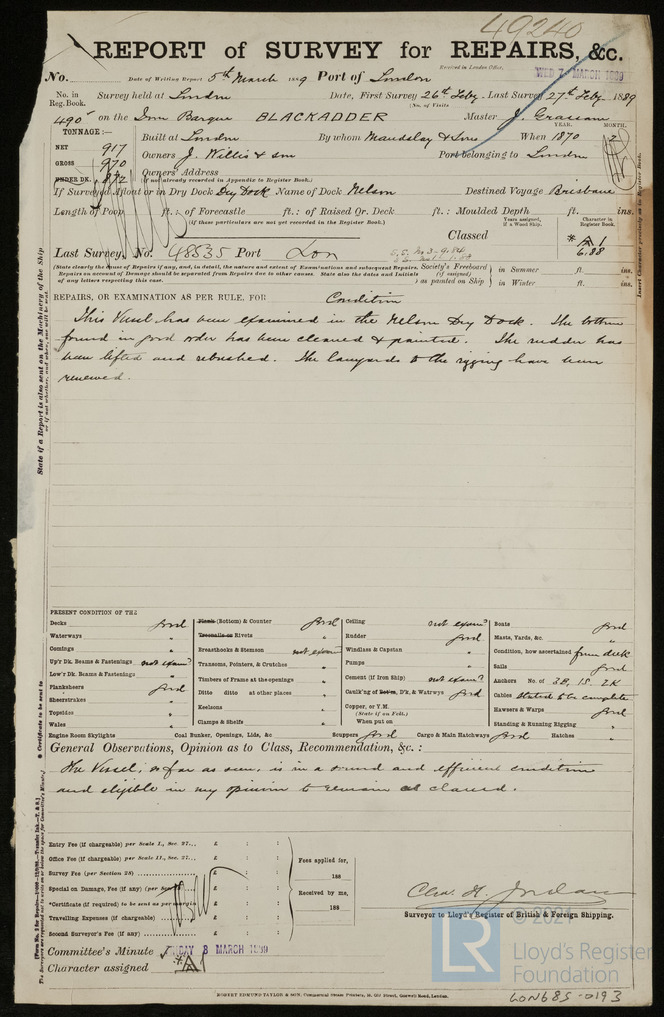 49240
REPORT of SURVEY for REPAIRS, &c.
Received in London Office,
No. Date of Writing Report 5th March 1889 Port of London
WED 7 MARCH 1889
No. in Reg. Book. Survey held at London Date, First Survey 26th Feby. Last Survey 27th Feby. 1889
(No. of Visits
490 on the Iron Barque BLACKADDER Master J.
TONNAGE:— YEAR. MONTH.
Built at London By whom Maudslay & Sons When 1870 2
NET 917 Owners J. Willis & son Port belonging to London
GROSS 970 Owners' Address
(if not already recorded in Appendix to Register Book.)
UNDER DK. 872
If Surveyed Afloat or in Dry Dock Dry Dock Name of Dock Nelson Destined Voyage Brisbane
Length of Poop ft.: of Forecastle ft.: of Raised Qr. Deck ft.: Moulded Depth ft. ins.
(if these particulars are not yet recorded in the Register Book.)
Years assigned, if a Wood Ship. Character in Register Book.
Classed * A 1
6.88
Last Survey, No. 48535 Port Lon
(State clearly the cause of Repairs if any, and, in detail, the nature and extent of Examinations and subsequent Repairs.
Repairs on account of Damage should be separated from Repairs due to other causes. State also the dates and Initials
of any letters respecting this case.
Society's Freeboard (if assigned) as painted on Ship in Summer ft. ins.
in Winter ft. ins.
REPAIRS, OR EXAMINATION AS PER RULE, FOR Condition
This Vessel has been examined in the Nelson Dry Dock. The bottom
found in good order has been cleaned & painted. The rudder has
been lifted and rebushed. The lanyards to the rigging have been
renewed.
PRESENT CONDITION OF THE
Decks good
Waterways "
Comings "
Up'r Dk. Beams & Fastenings not exam'd
Low'r Dk. Beams & Fastenings "
Planksheers good
Sheerstrakes "
Topsides "
Wales "
Engine Room Skylights
Plank (Bottom) & Counter good
Treenails or Rivets "
Breasthooks & Stemson not exam'd
Transoms, Pointers, & Crutches "
Timbers of Frame at the openings "
Ditto ditto at other places "
Keelsons "
Clamps & Shelfs "
Coal Bunker, Openings, Lids, &c
Ceiling not exam'd
Rudder good
Windlass & Capstan "
Pumps "
Cement (if Iron Ship) not exam'd
Caulk'ng of Bottm, D'k, & Watrways good
Copper, or Y.M.
(State if on Felt.)
When put on
Scuppers good Cargo & Main Hatchways good Hatches "
Boats good
Masts, Yards, &c. "
Condition, how ascertained from deck
Sails good
Anchors No. of 3B, 1S, 2K
Cables stated to be complete
Hawsers & Warps good
Standing & Running Rigging "
General Observations, Opinion as to Class, Recommendation, &c. :
The Vessel, so far as seen, is in a sound and efficient condition
and eligible in my opinion to remain as classed.
Entry Fee (if chargeable) per Scale I., Sec. 27... £ : :
Office Fee (if chargeable) per Scale II., Sec. 27... £ : :
Survey Fee (per Section 28) £ : :
Special on Damage, Fee (if any) (per £ : :
*Certificate (if required) to be sent as per margin £ : :
Travelling Expenses (if chargeable) £ : :
Second Surveyor's Fee (if any) £ : :
Fees applied for,
188
Received by me,
188
Chas. H. Jordan
Surveyor to Lloyd's Register of British & Foreign Shipping.
Committee's Minute FRIDAY 8 MARCH 1889
Character assigned * A 1
ROBERT EDMUND TAYLOR & SON, Commercial Steam Printers, 19, Old Street, Goswell Road, London.
© 2021
LR Lloyd's Register
Foundation
LON685-0193
State if a Report is also sent on the Machinery of the Ship
Insert Character precisely as in Register Book.